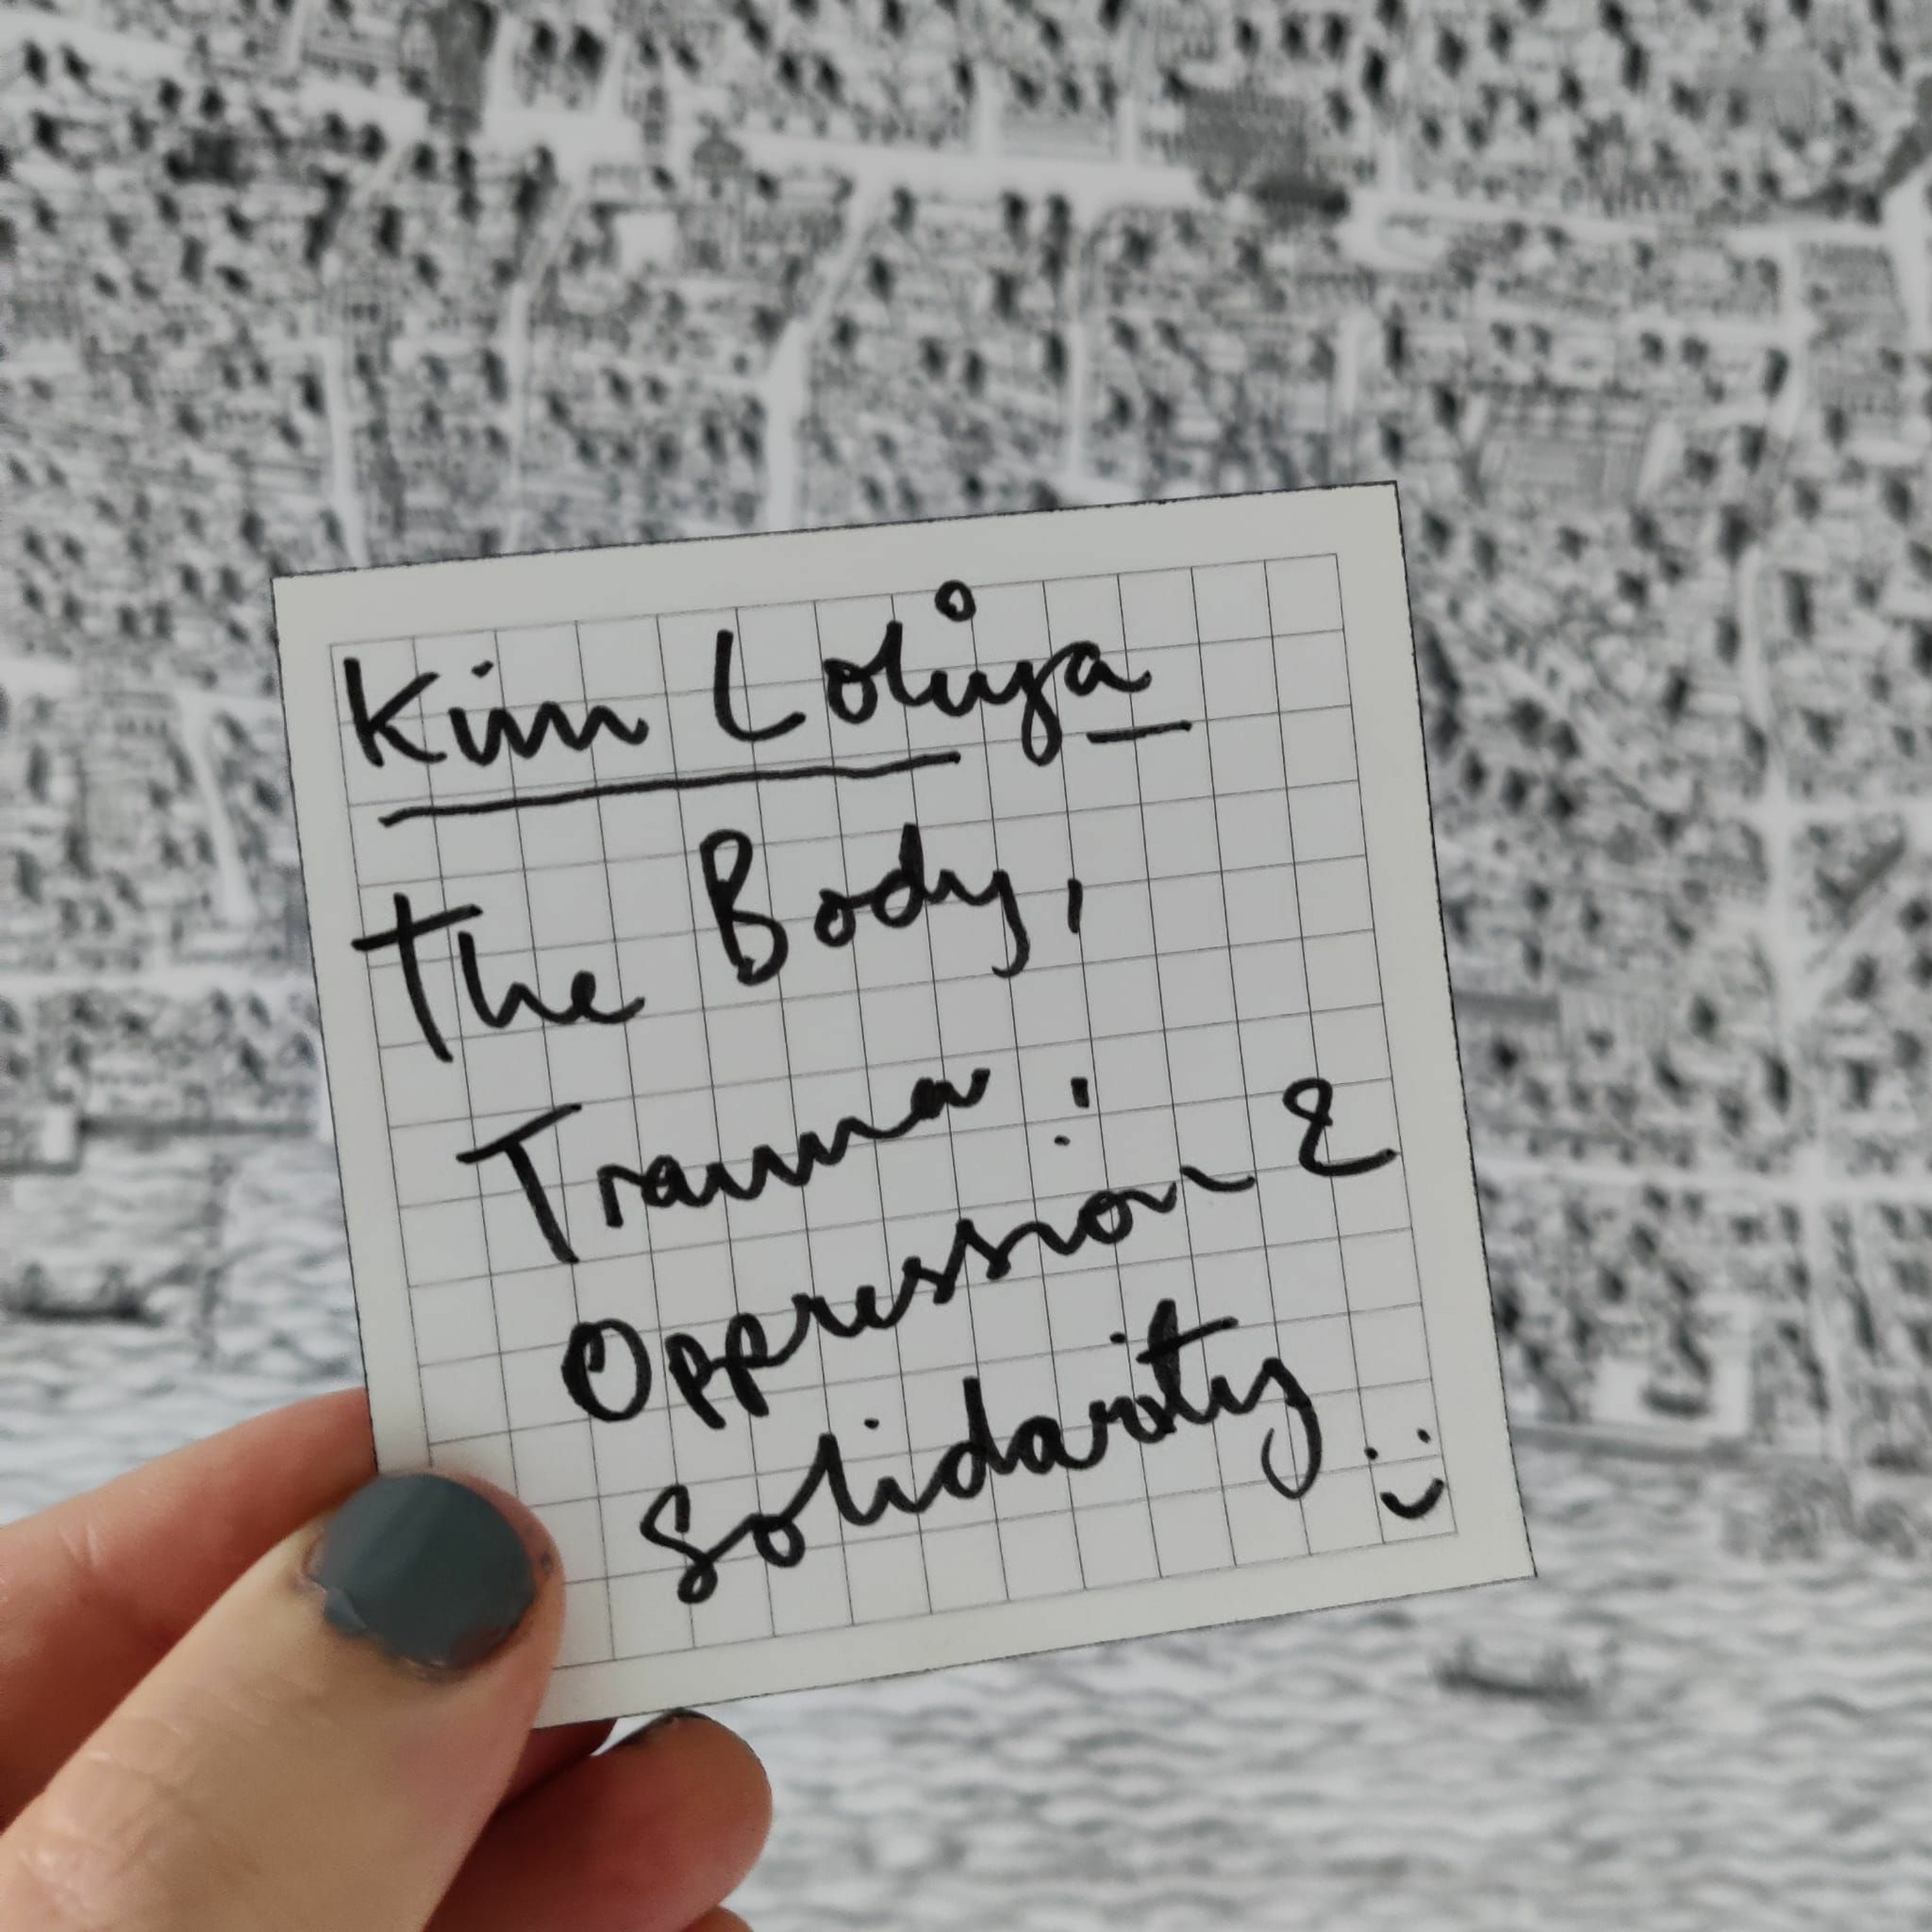 Kim Loliya
the Body,
Trauma:
Oppression &
Solidarity :)